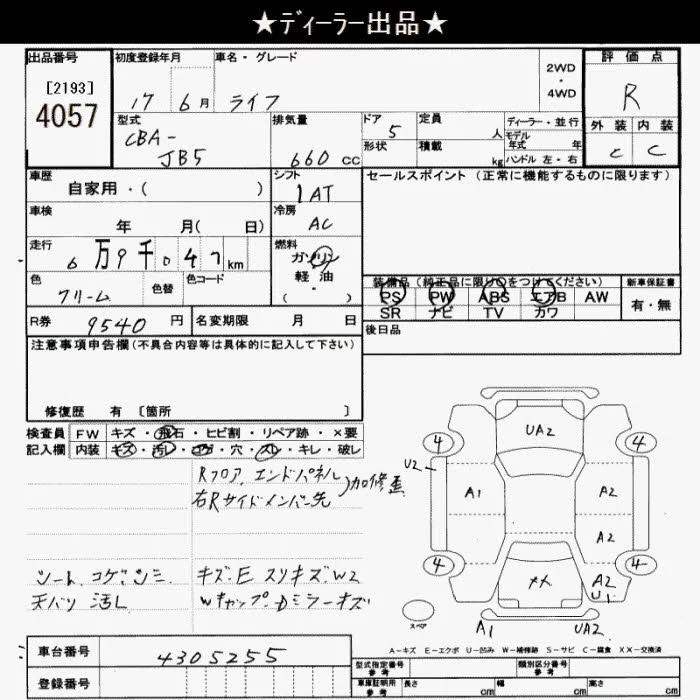 ★ディーラー出品★
出品番号 初度登録年月 車名・グレード 2WD・4WD 評価点
[2193]
4057
17 6月 ライフ R
型式 排気量 ドア 定員 ディーラー・並行 外装 内装
CBA-
JB5 660cc 5 人 モデル年式 年 C C
形状 積載 kg ハンドル 左・右
車歴 シフト セールスポイント (正常に機能するものに限ります)
自家用・( ) 1AT
車検 冷房
年 月( 日) AC
走行 燃料
6万9千047km ガソリン
軽油
・
( )
色 色替 色コード
クリーム
装備品(純正品に限り○をつけてください) 新車保証書
PS PW ABS エアB AW 有・無
SR ナビ TV カワ
R券 9540円 名変期限 月 日
後日品
注意事項申告欄(不具合内容等は具体的に記入して下さい)
修復歴 有 〔箇所 〕
検査員 FW キズ・飛石・ヒビ割・リペア跡・×要
記入欄 内装 キズ・汚レ・コゲ・穴・スレ・キレ・破レ
Rフロア、エンドパネル
右Rサイドメンバー先 )加修歪
シート コゲ、シミ
天バリ 汚レ
キズ・E スリキズ・W2
Wキャップ・Dミラーキズ
UA2
4 4
U2
A1 A2
A2
4 4
XX A2
U1
スペア
A1 UA2
A-キズ E-エクボ U-凹み W-補修跡 S-サビ C-腐食 XX-交換済
車台番号 4305255
登録番号
型式指定番号 参考 類別区分番号 参考
車庫証明用 参考 長さ cm 幅 cm 高さ cm